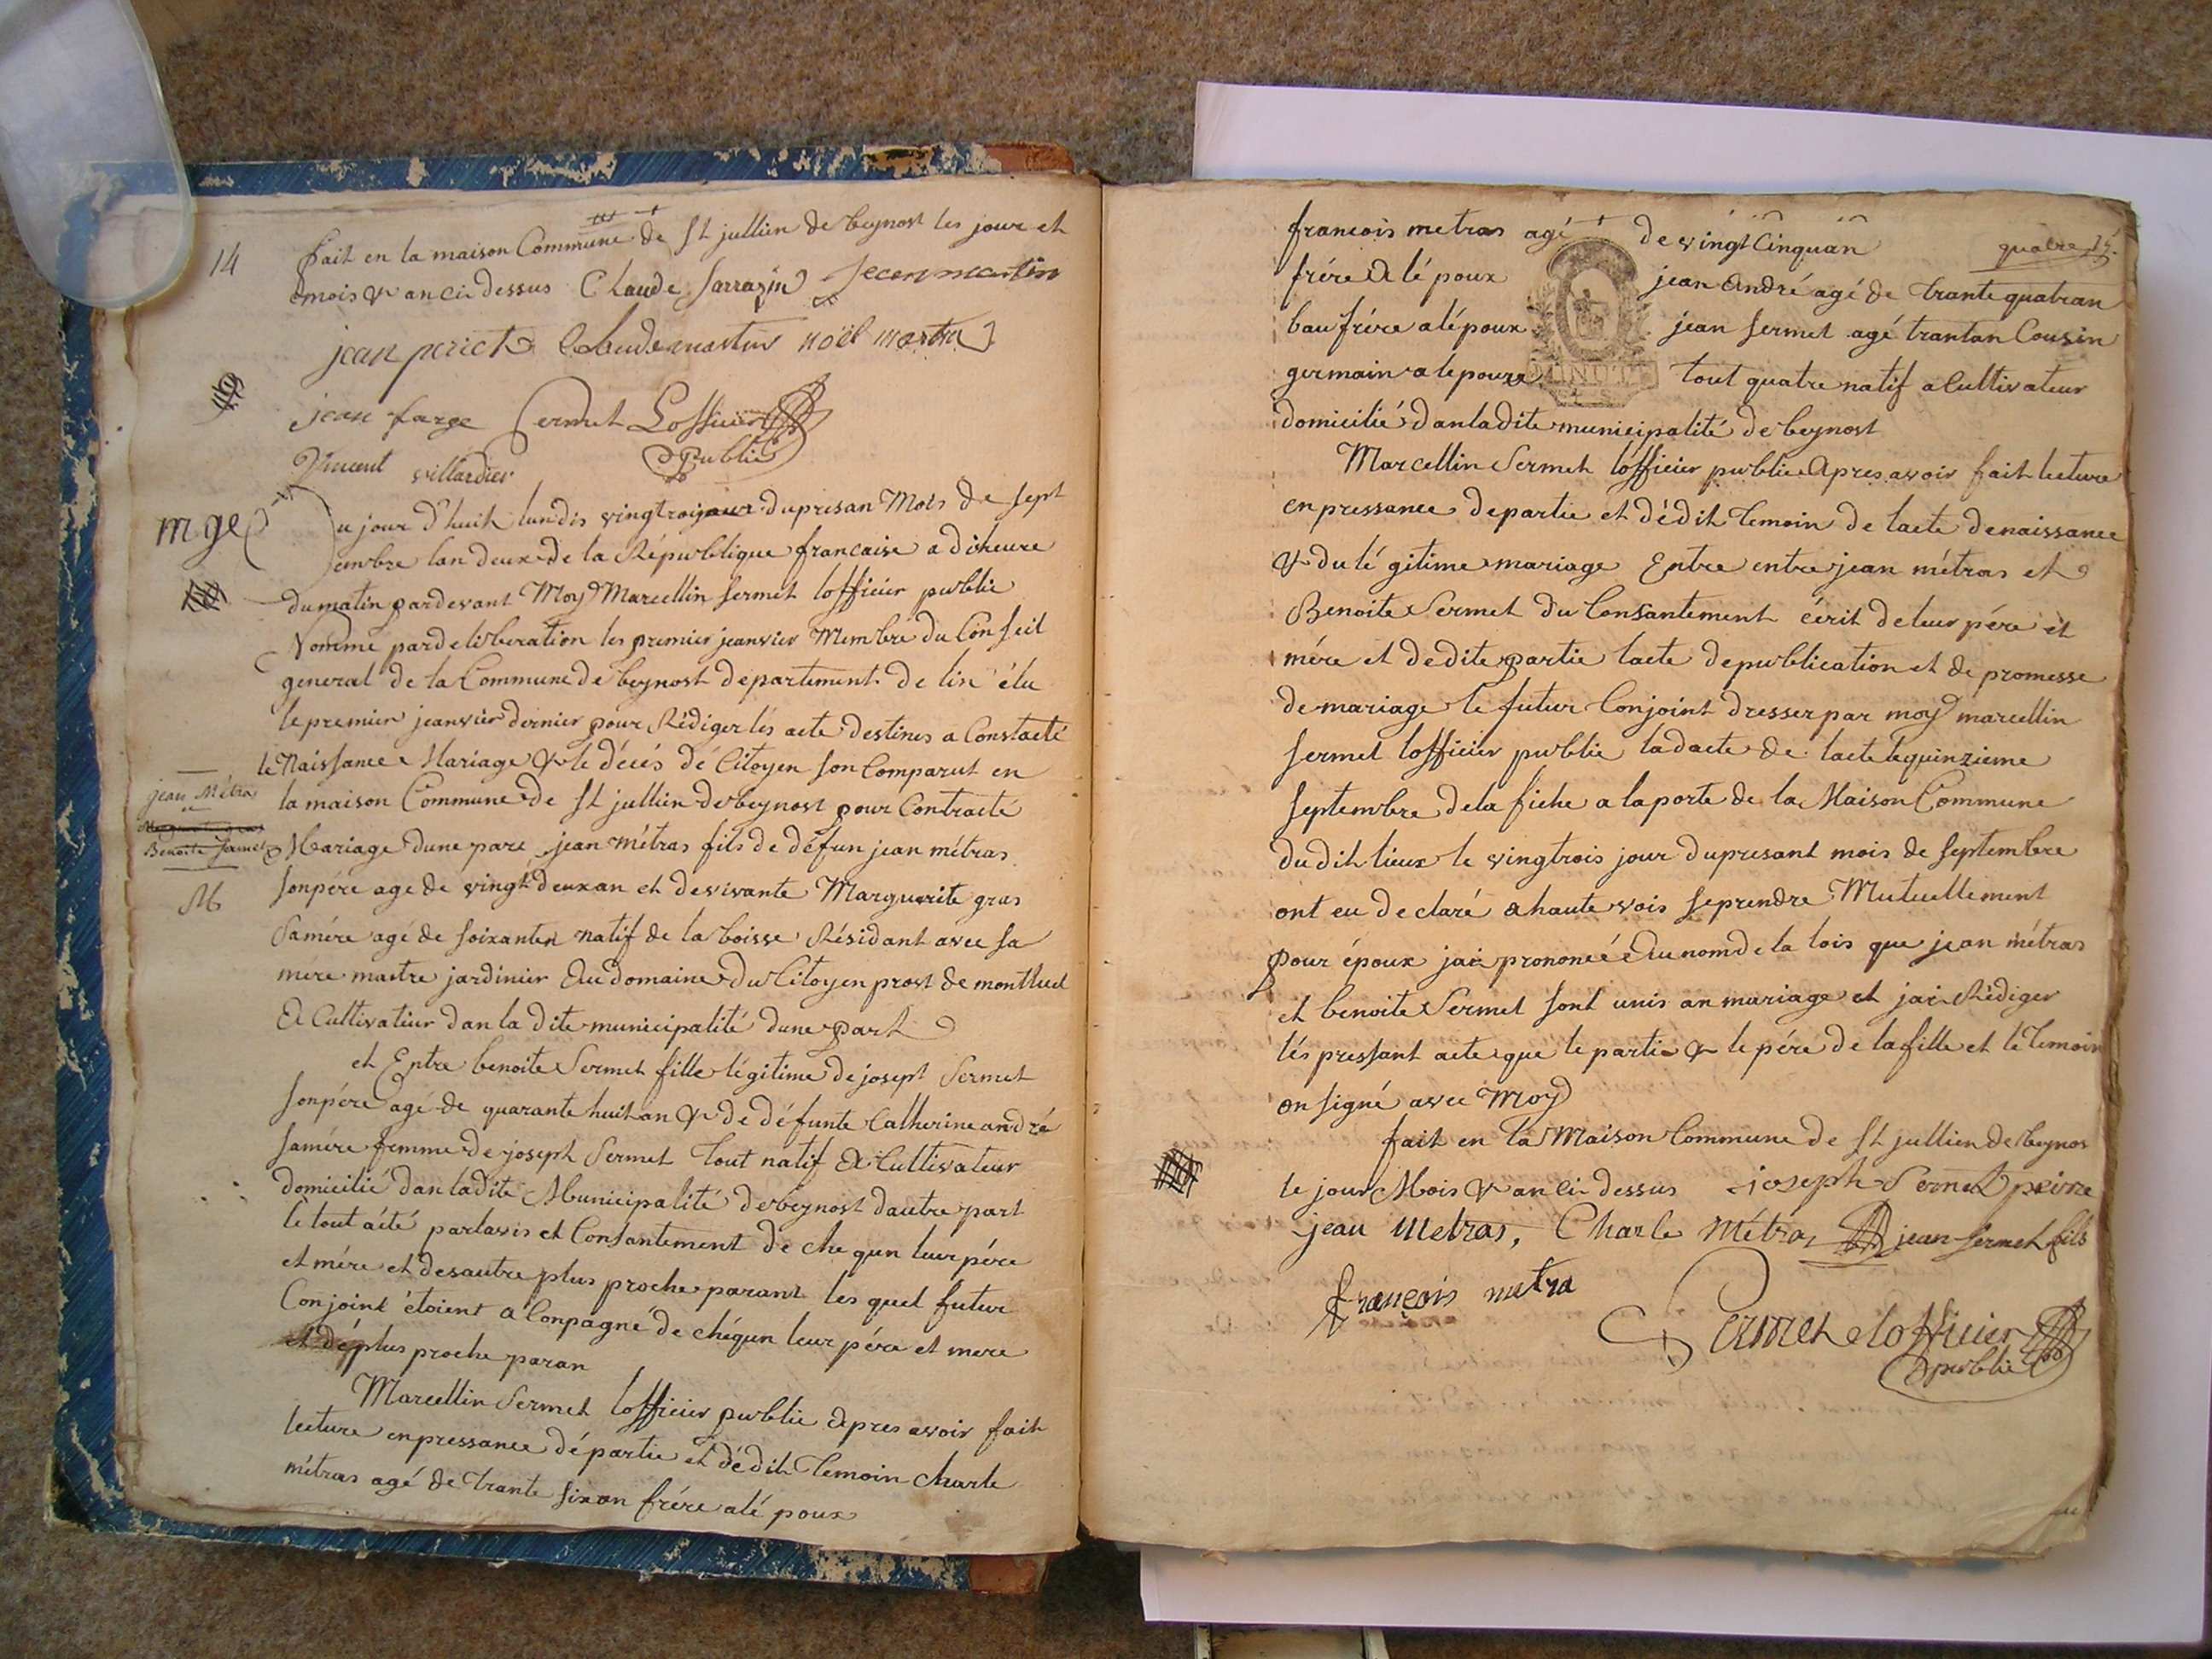 14
fait en la maison Commune de St jullien de beynost les jour et
mois & an ci dessus Claude Sarrazin jean martin
jean perict Claude martin noël martin
jean farge Sermet Lofficier
Vincent villardier public
mge
Au jour d'huit lundis vingtroijour du presan Mois de Sept
embre lan deux de la République francaise a diheure
du matin pardevant Moy Marcellin Sermet lofficier public
Nommé par deliberation les premier jeanvier Membre du Conseil
general de la Commune de beynost departement de lin élu
le premier jeanvier dernier pour Rédiger lés acte destines a Constacté
le Naissance Mariage & le décés dé Citoyen son Comparut en
jean Métra
la maison Commune de St jullien de beynost pour Contracté
Benoite Sermet
Mariage dune pare jean métras fils de défun jean métras
son pére age de vingt deux an et de vivante Marguerite gras
M
Samére agé de soixanten natif de la boisse Résidant avec sa
mere maitre jardinier du domaine du Citoyen prost de montluel
& Cultivatiur dan la dite municipalité dune part
et Entre benoite Sermet fille légitime de josept Sermet
son pére agé de quarante huit an & de défunte Catherine andré
samére femme de joseph Sermet tout natif & Cultivateur
domicilié dan ladite Municipalité de beynost dautre part
le tout aété parlavis et Consantement de che qun leur pére
et mére et desautre plus proche parant les quel futur
Conjoint étoient a Conpagné de chéqun leur pére et mere
et dé plus proche paran
Marcellin Sermet lofficier public apres avoir fait
lecture enpressance départie et dédit Témoin charle
métras agé de trante six an frére alé poux
francois metras agé de vingt Cinquan
quatre 15.
frére a lé poux jean André agé de trante quatran
bau frére alépoux jean Sermet agé trantan Cousin
germain a lepouze tout quatre natif a Cultivateur
domicilié dan ladite municipalité de beynost
Marcellin Sermet lofficier public Apres avoir fait lecture
en pressance departie et dédit Temoin de lacte denaissance
& du lé gitime mariage Entre entre jean métras et
Benoite Sermet du Consantement écrit de leur pére et
mére et de dite partie lacte depublication et de promesse
de mariage le futur Conjoint dresser par moy marcellin
Sermet lofficier public la dacte de lacte lequinzieme
Septembre dela fiche a la porte de la Maison Commune
du dit lieux le vingtrois jour dupresant mois de Septembre
ont eu declaré a haute vois seprendre Mutuellement
pour époux jai prononcée Au nom de la lois que jean métras
et benoite Sermet sont unis an mariage et jai Rédiger
lés pressant acte que le parti & le pére de lafille et le Temoin
on signé avec Moy
fait en la Maison Commune de St jullien de beynos
le jour Mois & an ci dessus joseph Sermet
jean Metras, Charle Métra, jean Sermet fils
françois metra
Sermet lofficier
public